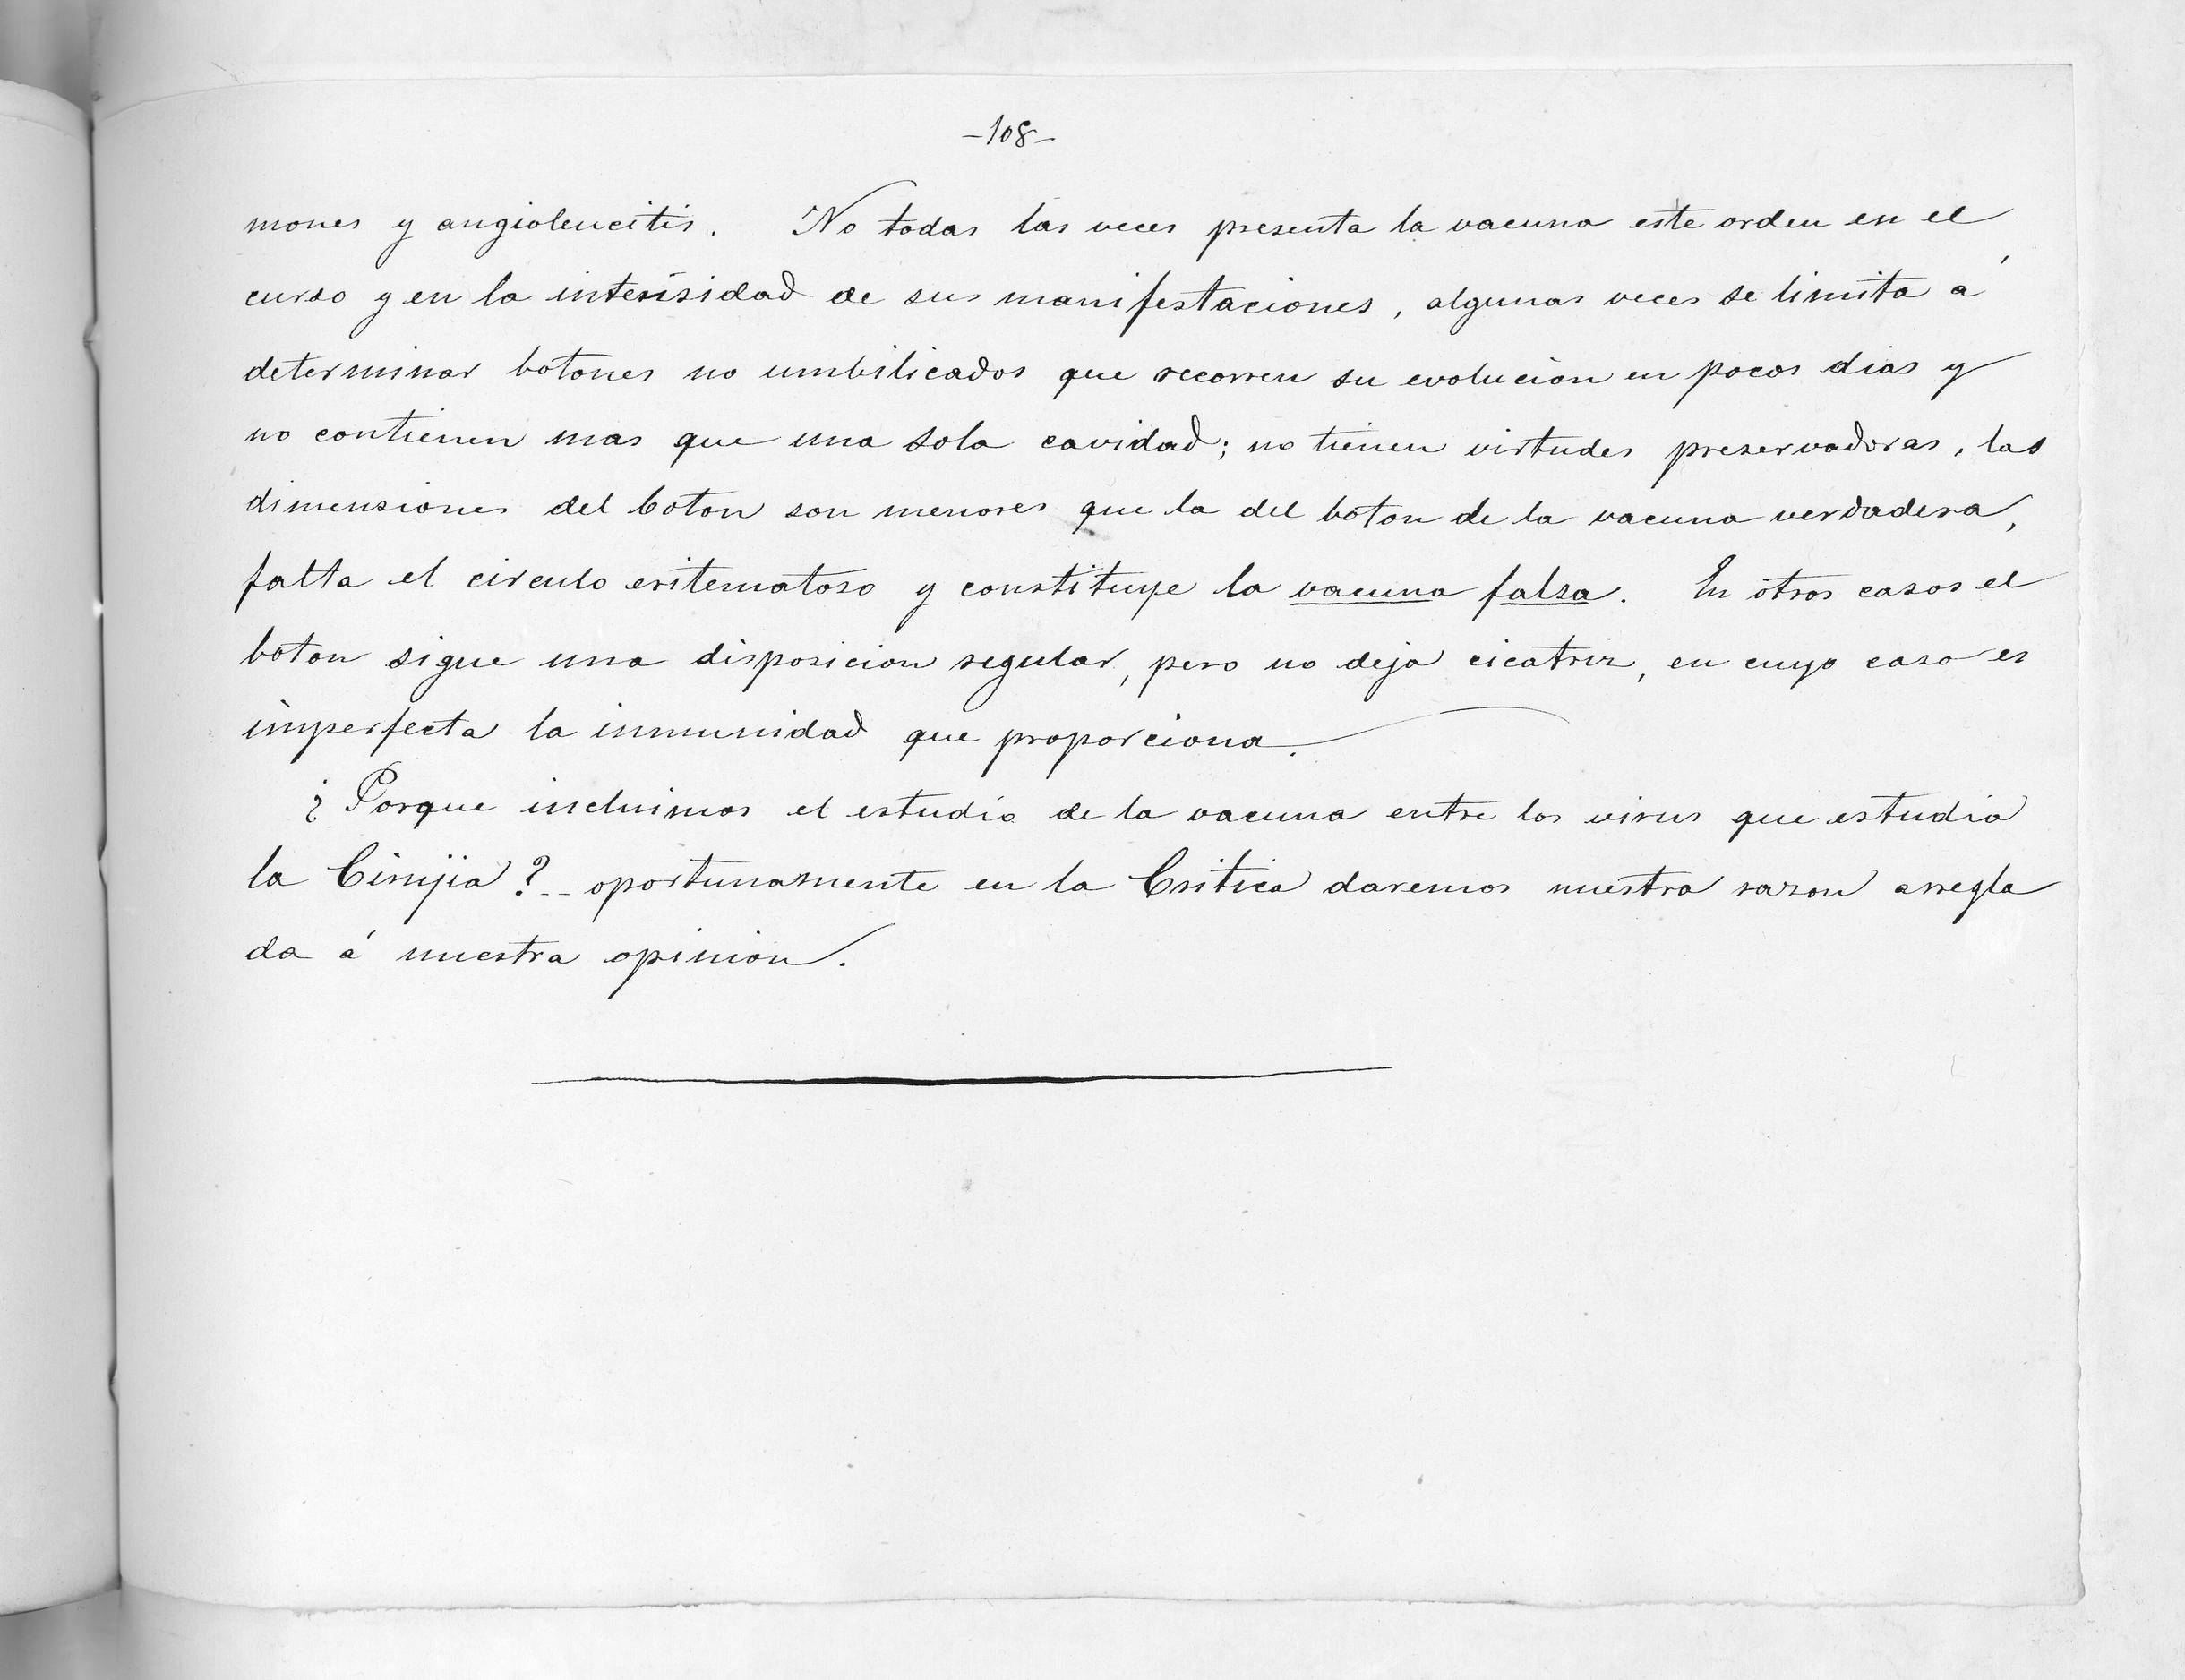 -108-
mones y angioleucitis. No todas las veces presenta la vacuna este orden en el
curso y en la intensidad de sus manifestaciones, algunas veces se limita á
determinar botones no umbilicados que recorren su evolucion en pocos dias y
no contienen mas que una sola cavidad; no tienen virtudes preservadoras, las
dimensiones del boton son menores que la del boton de la vacuna verdadera,
falta el circulo eritematoso y constituye la vacuna falsa. En otros casos el
boton sigue una disposicion regular, pero no deja cicatriz, en cuyo caso es
imperfecta la inmunidad que proporciona.
¿Porque incluimos el estudio de la vacuna entre los virus que estudia
la Cirujia? — oportunamente en la Critica daremos nuestra razon arregla
da á nuestra opinion.